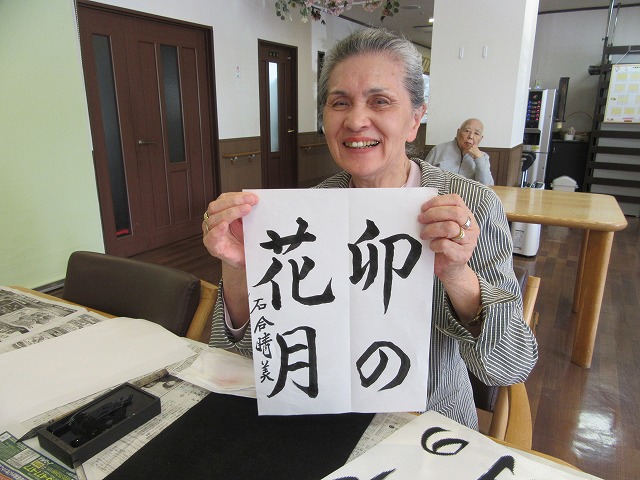 卯の
花月
石合晴美